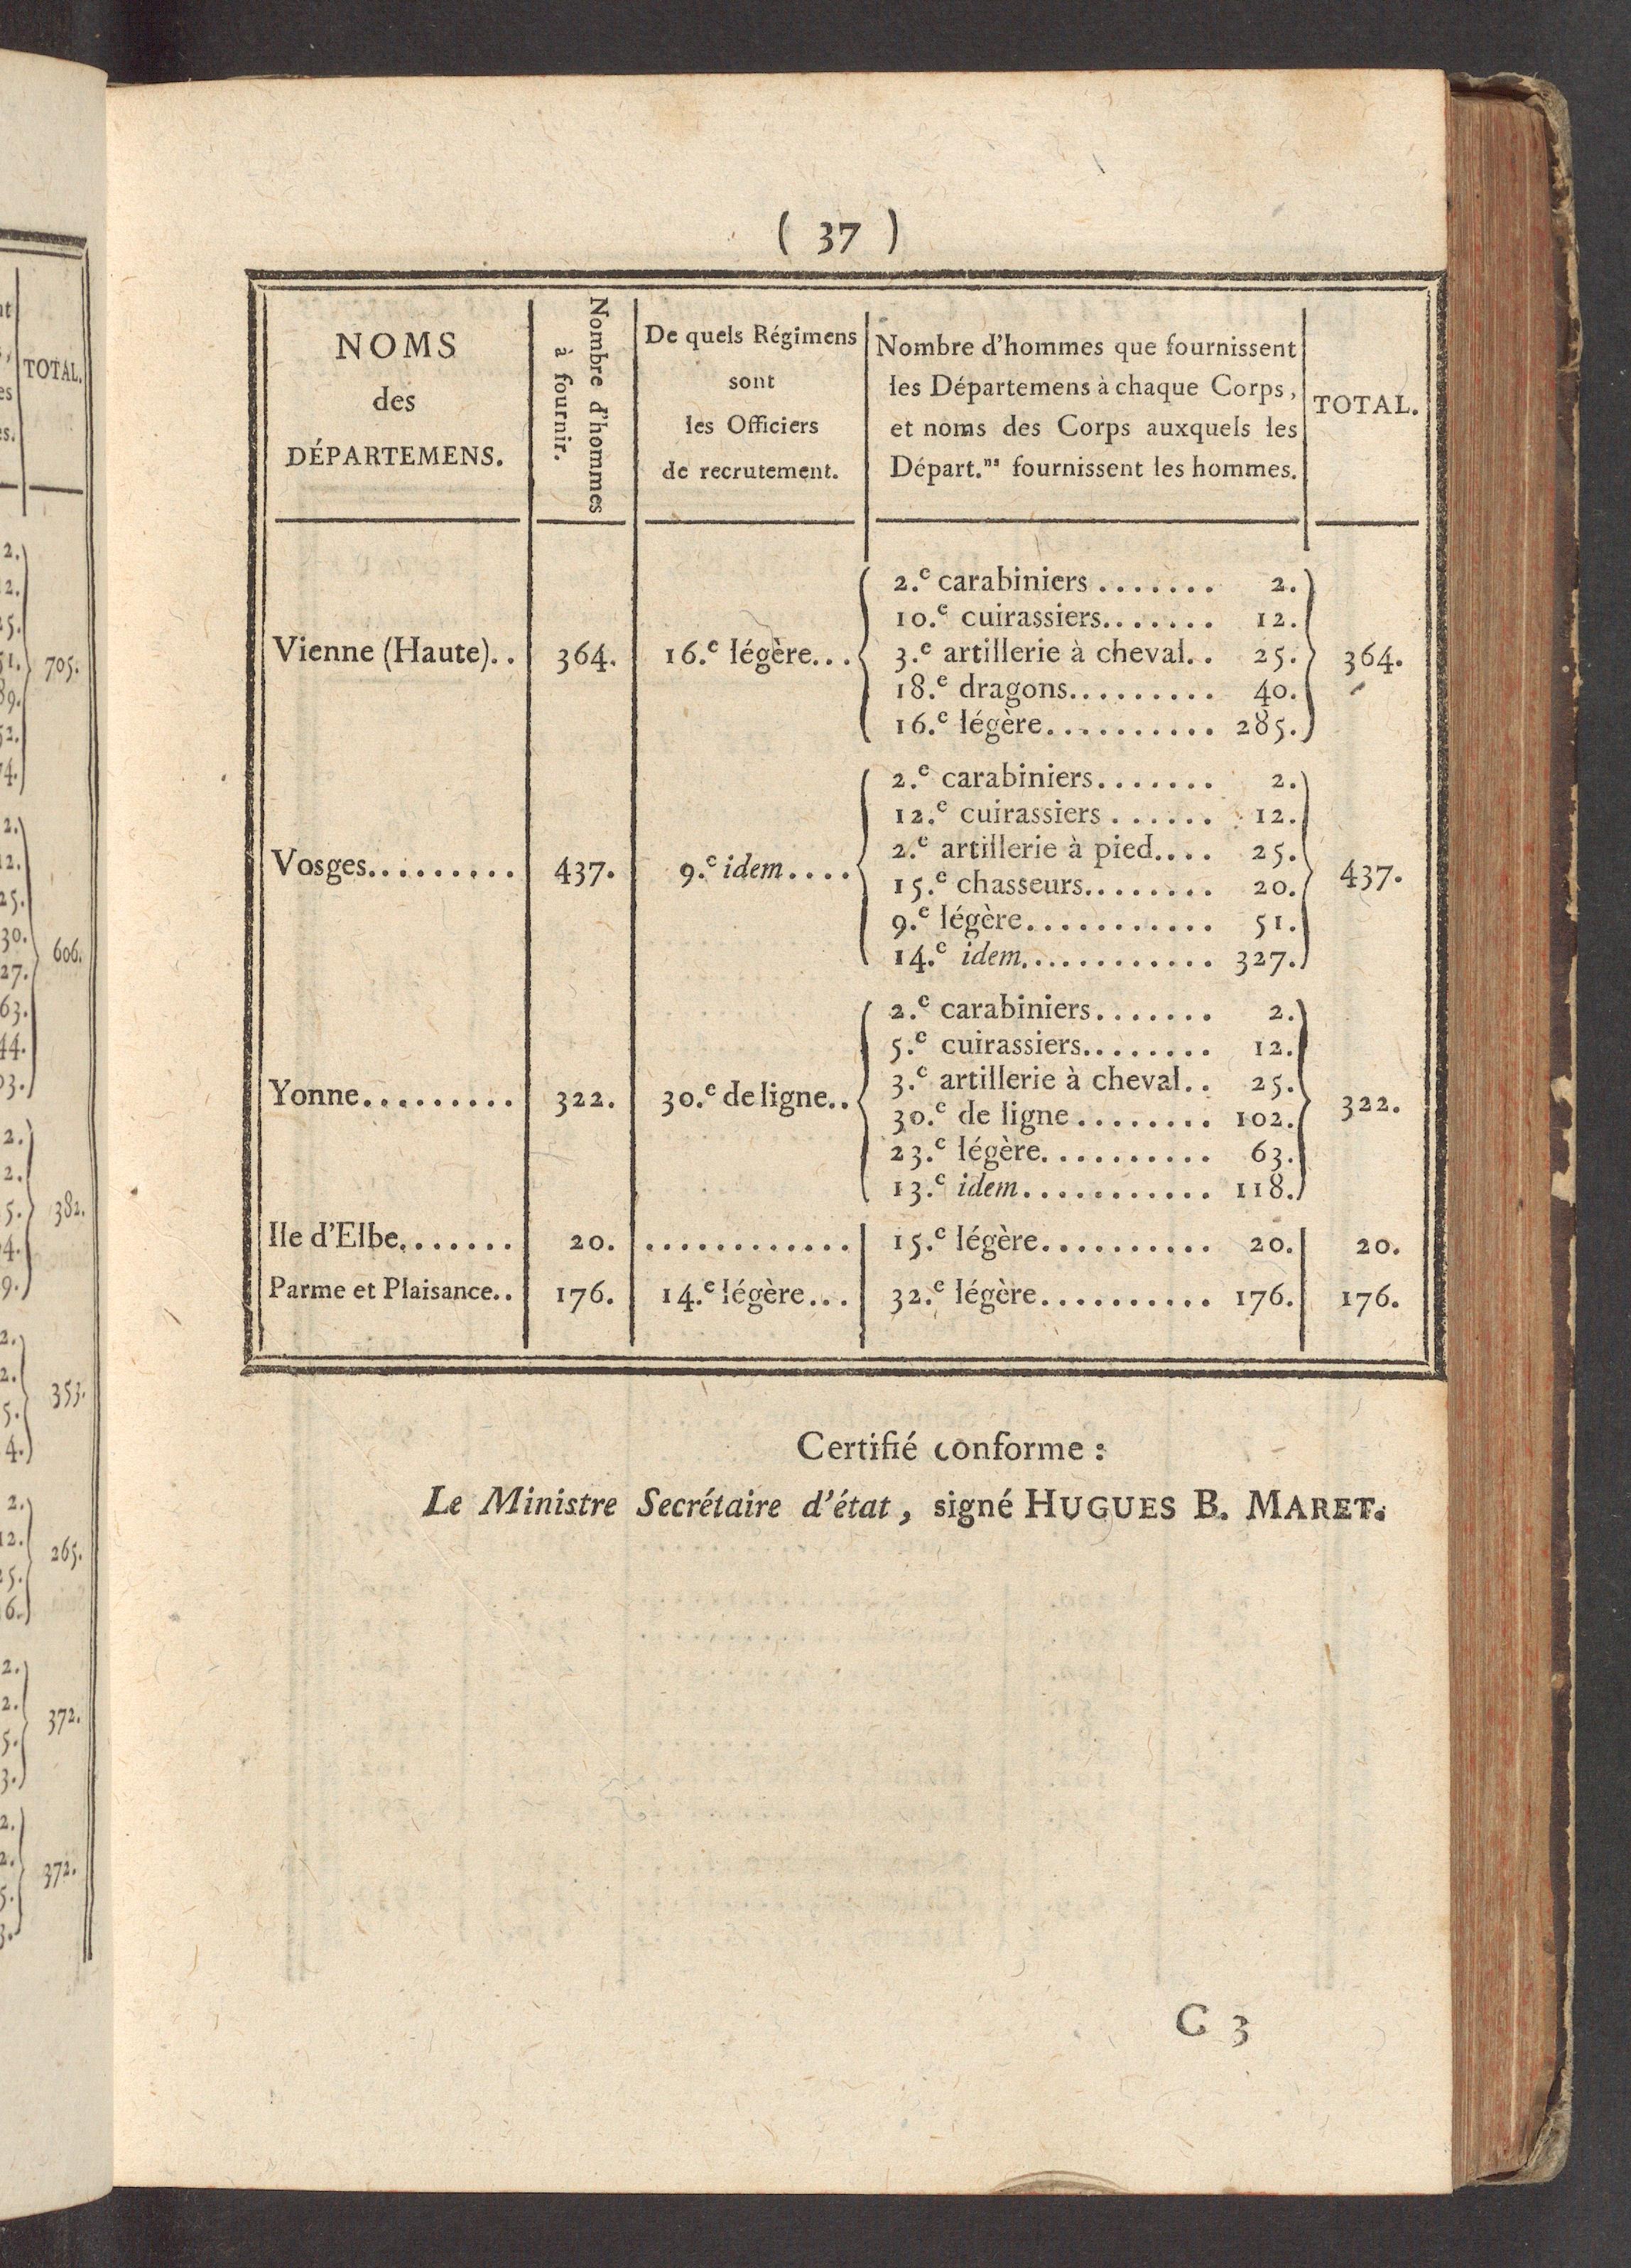 ( 37 )
NOMS
des
DÉPARTEMENS.
Nombre d'hommes
à fournir.
De quels Régimens
sont
les Officiers
de recrutement.
Nombre d'hommes que fournissent
les Départemens à chaque Corps,
et noms des Corps auxquels les
Départ.ns fournissent les hommes.
TOTAL.
Vienne (Haute).. 364. 16.e légère...
2.e carabiniers ....... 2.
10.e cuirassiers....... 12.
3.e artillerie à cheval.. 25.
18.e dragons......... 40.
16.e légère.......... 285.
364.
Vosges......... 437. 9.e idem....
2.e carabiniers....... 2.
12.e cuirassiers ...... 12.
2.e artillerie à pied.... 25.
15.e chasseurs........ 20.
9.e légère........... 51.
14.e idem............ 327.
437.
Yonne......... 322. 30.e de ligne..
2.e carabiniers....... 2.
5.e cuirassiers........ 12.
3.e artillerie à cheval.. 25.
30.e de ligne ........ 102.
23.e légère.......... 63.
13.e idem........... 118.
322.
Ile d'Elbe....... 20. ............ 15.e légère.......... 20. 20.
Parme et Plaisance.. 176. 14.e légère... 32.e légère.......... 176. 176.
Certifié conforme :
Le Ministre Secrétaire d'état, signé HUGUES B. MARET.
C 3
TOTAL.
705.
606.
382.
353.
265.
372.
372.